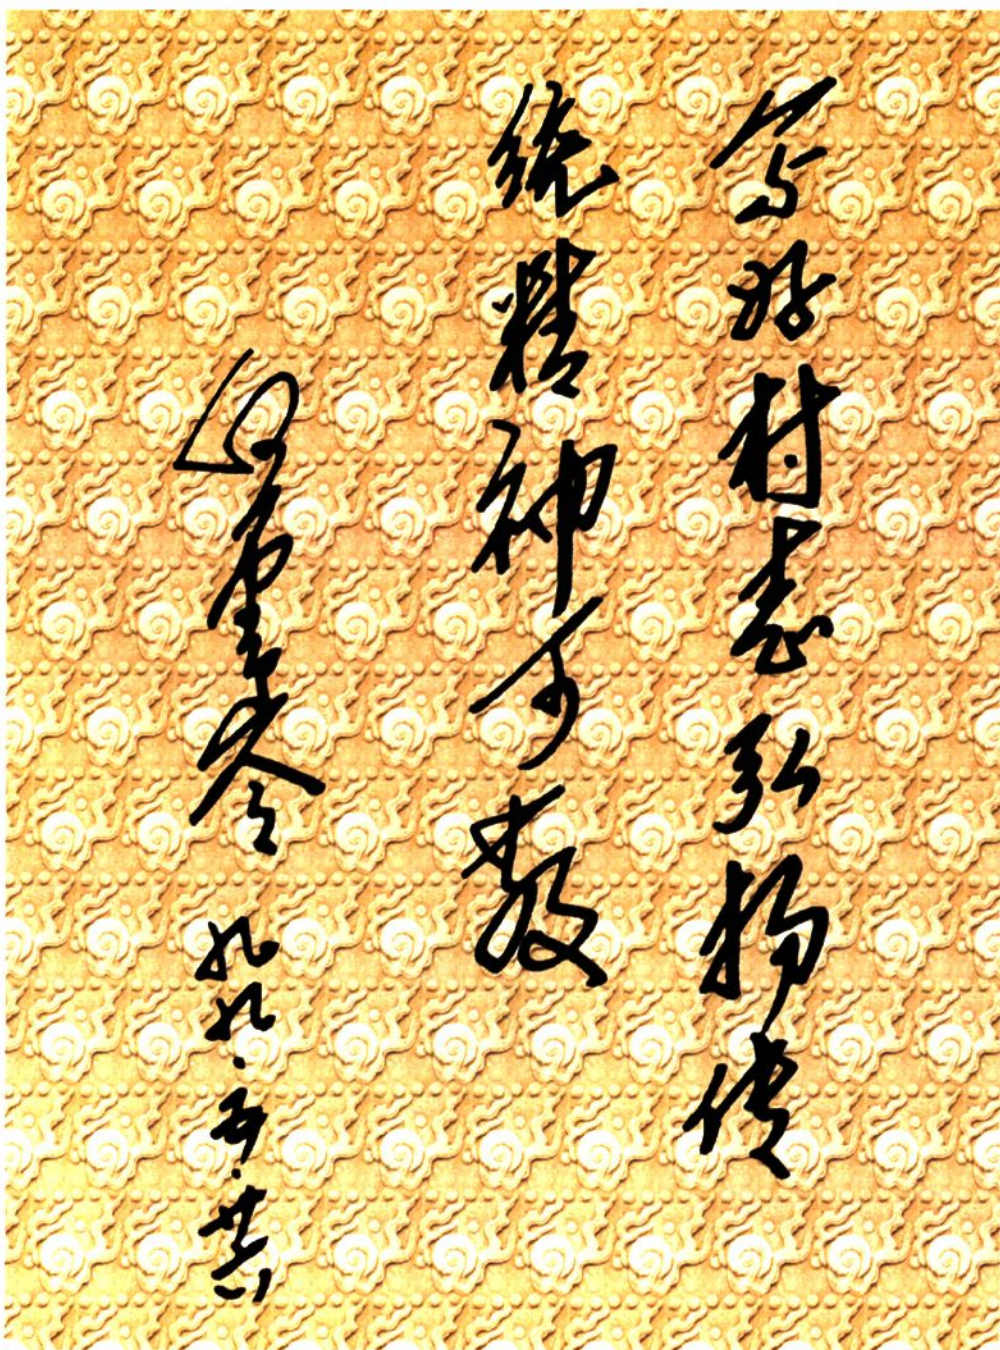 写好村志弘扬传
统精神可敬
九九·五·廿六